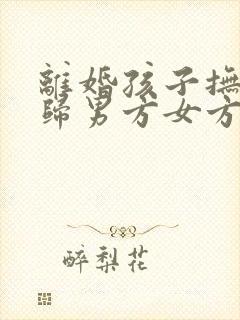 離婚孩子撫
歸男方女方
醉梨花